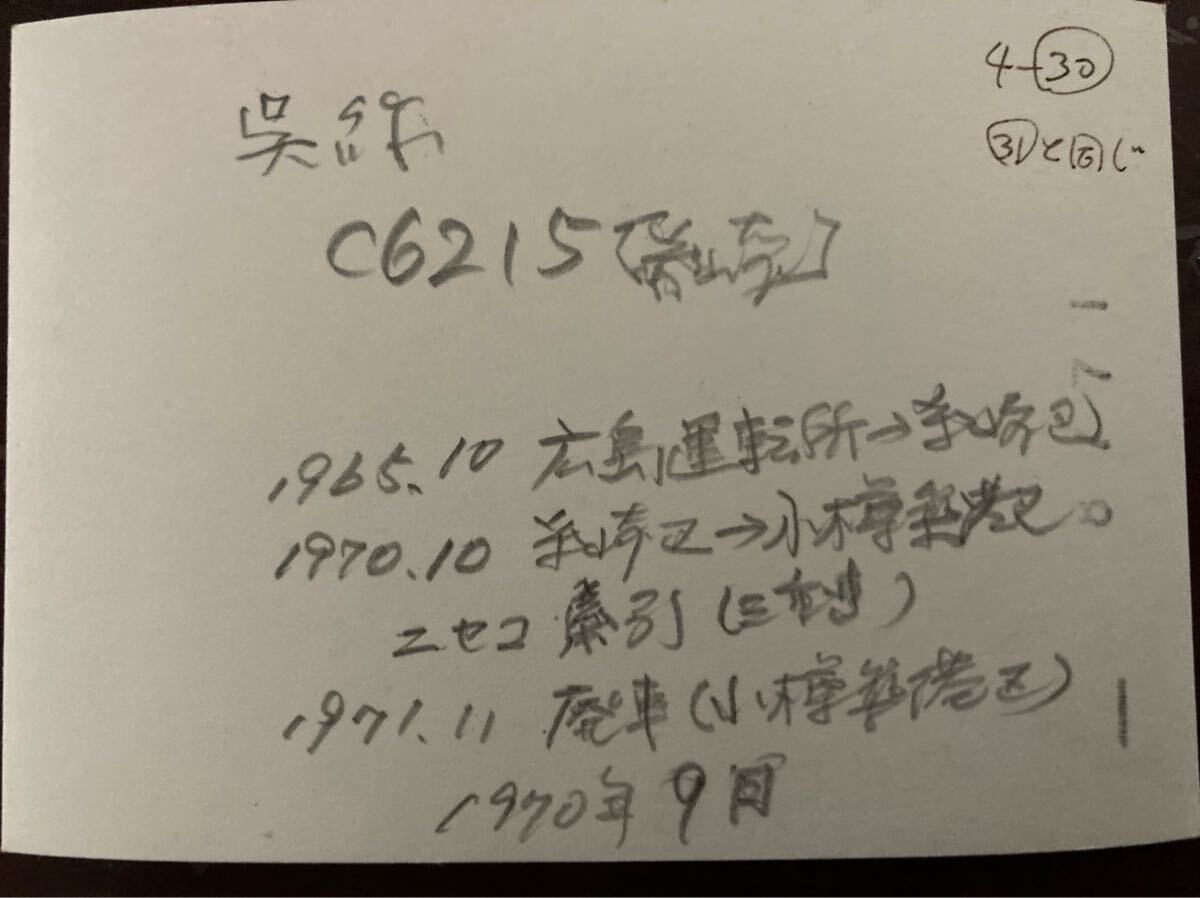 4-㉚
㉛と同じ
呉線
C6215
1965.10 広島運転所→糸崎区
1970.10 糸崎区→小樽築港区
ニセコ 牽引
1971.11 廃車(小樽築港区)
1970年9月